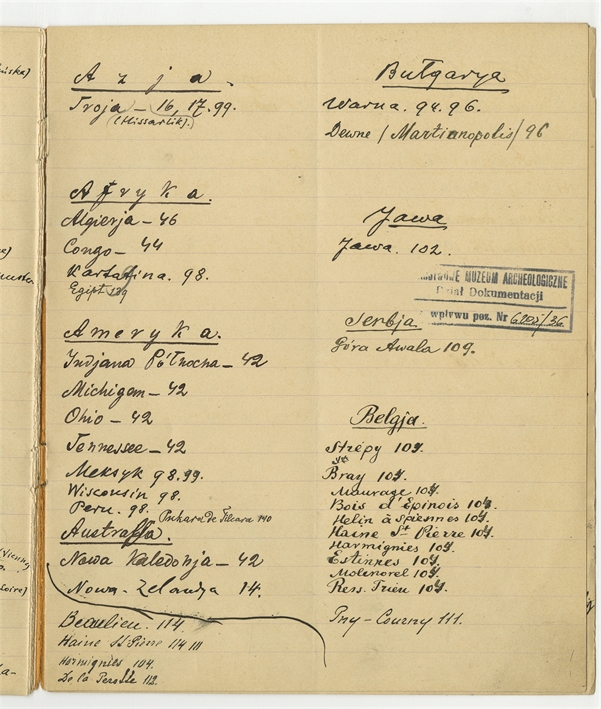 Azja.
Troja – 16, 17.99.
(Hissarlik).
Afryka.
Algierja – 46
Congo – 44
Kartagina. 98.
Egipt 129
Ameryka.
Indjana Północna – 42
Michigem – 42
Ohio – 42
Tennessee – 42
Meksyk 98.99.
Wisconsin 98.
Peru. 98. Pukara de 140
Australja.
Nowa Kaledonja – 42
Nowa-Zelandja 14.
Beaulieu. 114.
Haine St Pierre 114 111
Harmignies 104.
De la Perolle 112.
Bułgarya
Warna. 94.96.
Dewne /Martianopolis/ 96
Jawa
Jawa. 102.
MUZEUM ARCHEOLOGICZNE
Dział Dokumentacji
wpływu poz. Nr
Serbja
Góra Awala 109.
Belgja.
Strépy 107.
Bray 107.
Maurage 107.
Bois d'Epinois 107.
Helin à Spiennes 107.
Haine St Pierre 107.
Harmignies 107.
Estinnes 107.
Molinorel 107.
Ress. Trieu 107.
Pny-Courny 111.